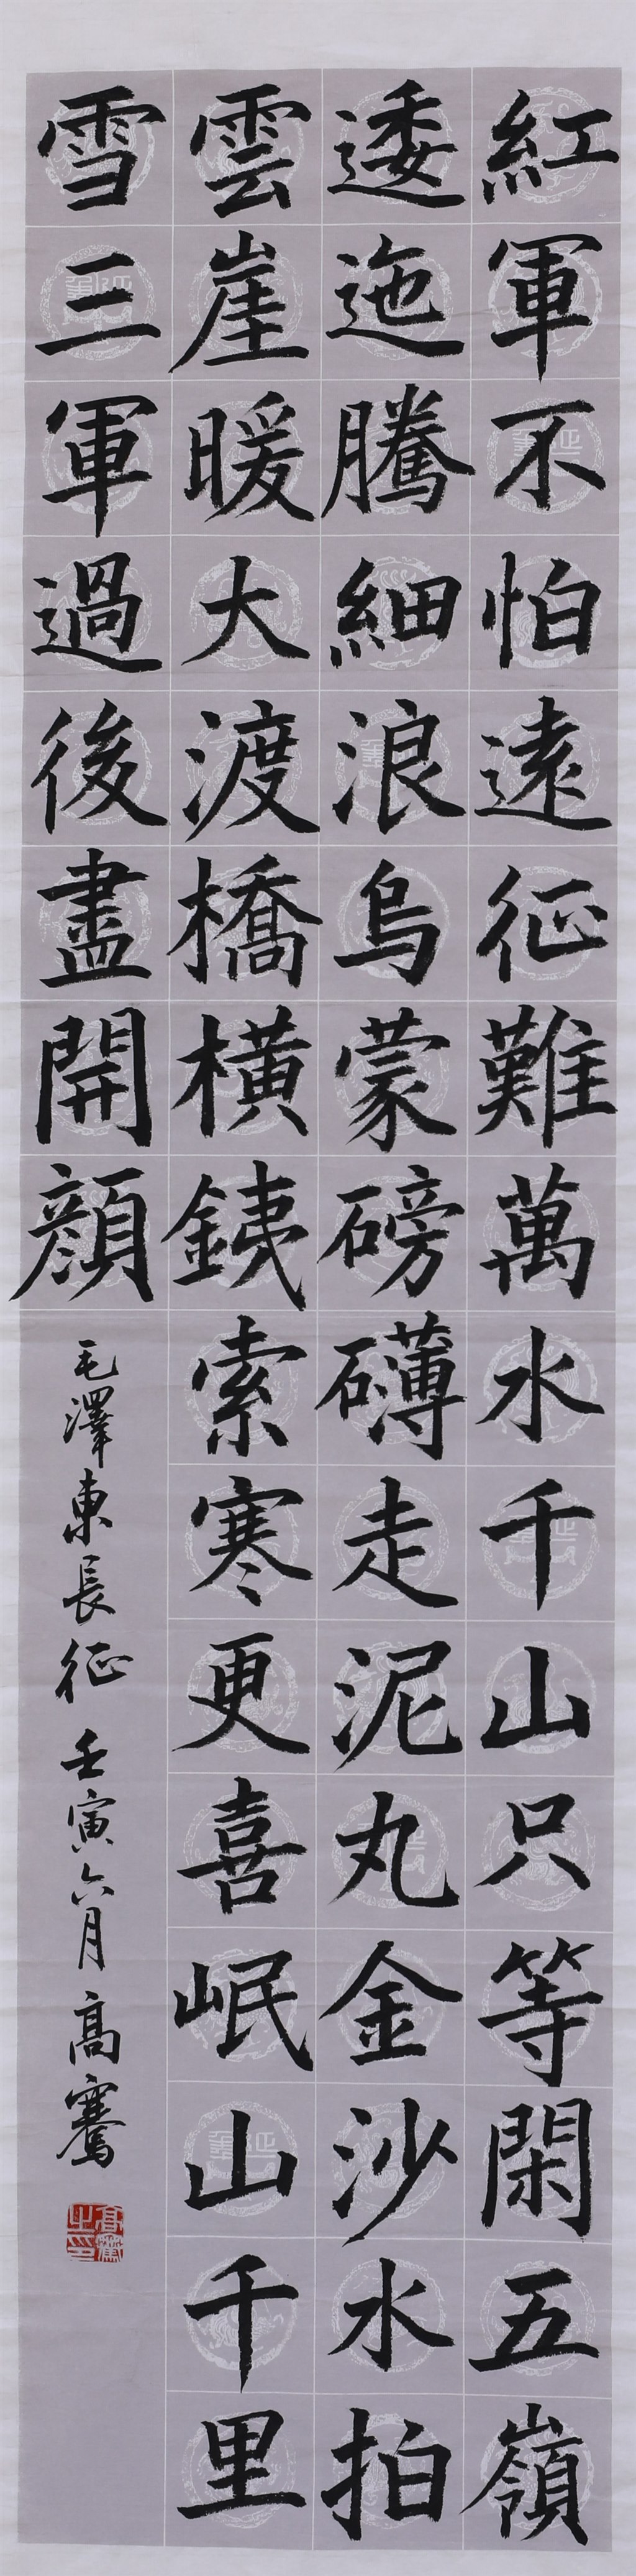 紅軍不怕遠征難萬水千山只等閑五嶺
逶迤騰細浪烏蒙磅礴走泥丸金沙水拍
雲崖暖大渡橋横銕索寒更喜岷山千里
雪三軍過後盡開顔 毛澤東長征 壬寅六月 高騫
高騫之印